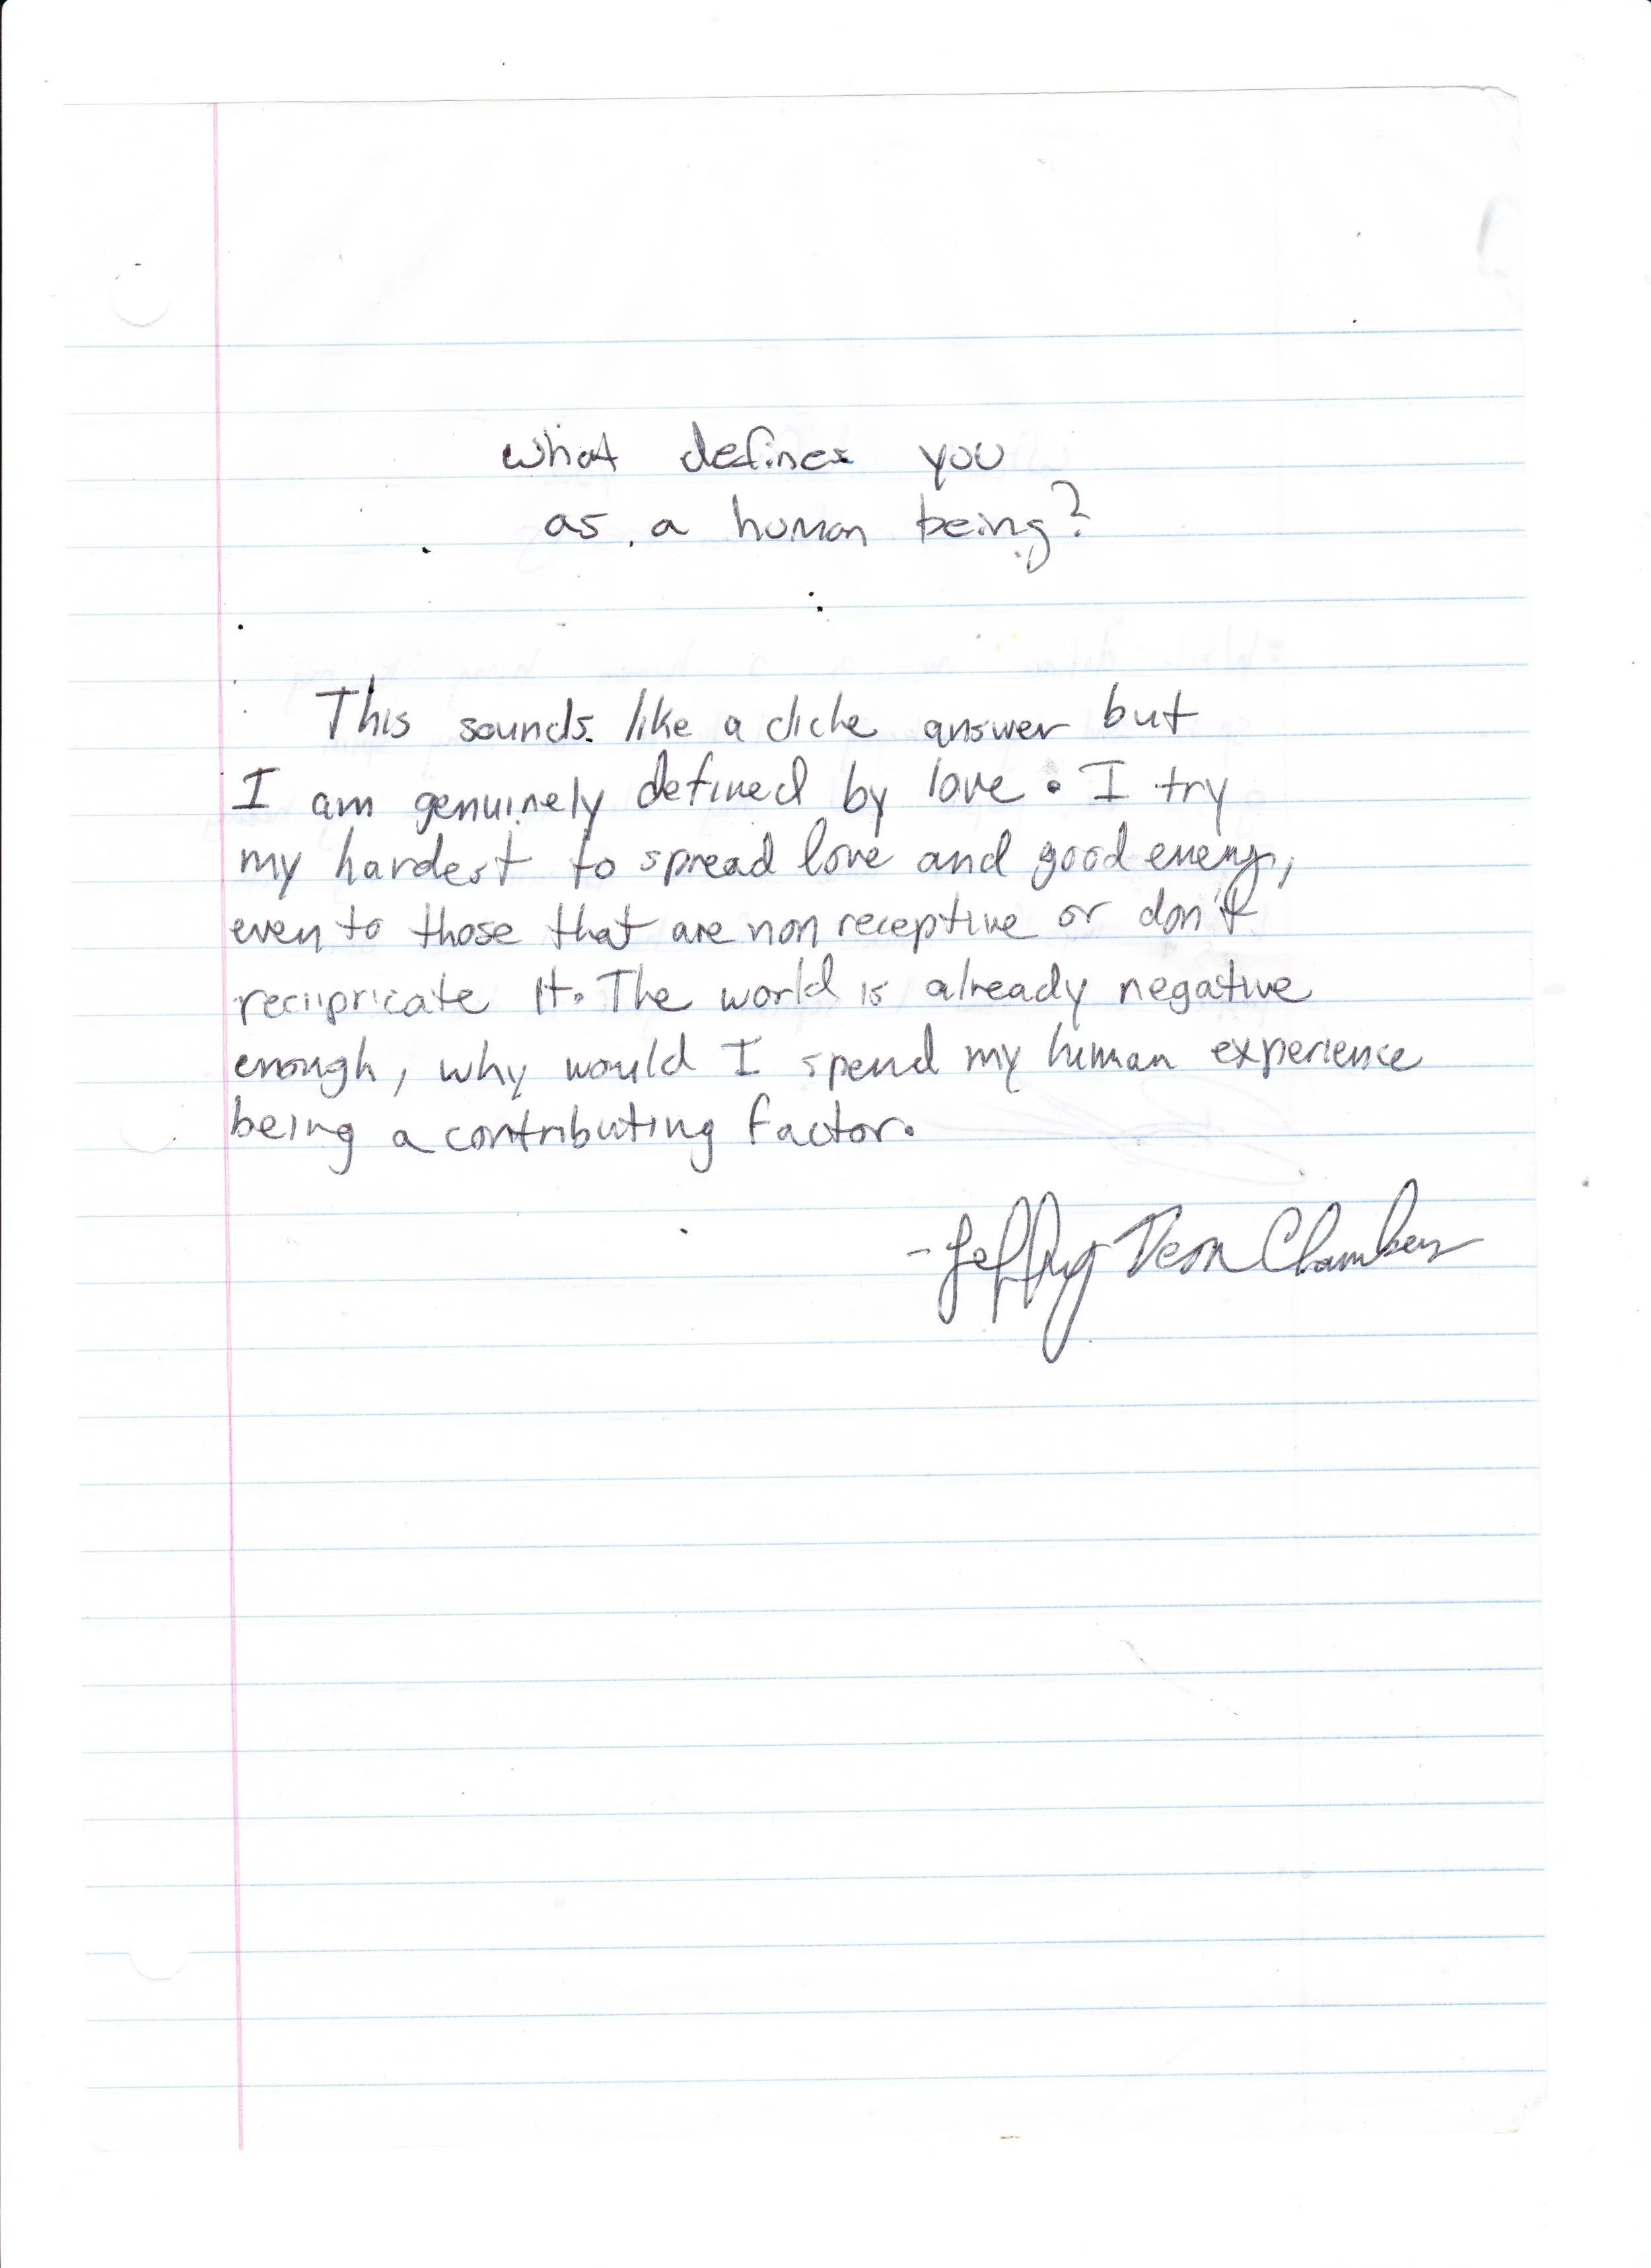 what defines you
as a human being?
This sounds like a cliche answer but
I am genuinely defined by love. I try
my hardest to spread love and good energy,
even to those that are non receptive or don't
reciipricate it. The world is already negative
enough, why would I spend my human experience
being a contributing factor.
-Jeffry Deon Chambers